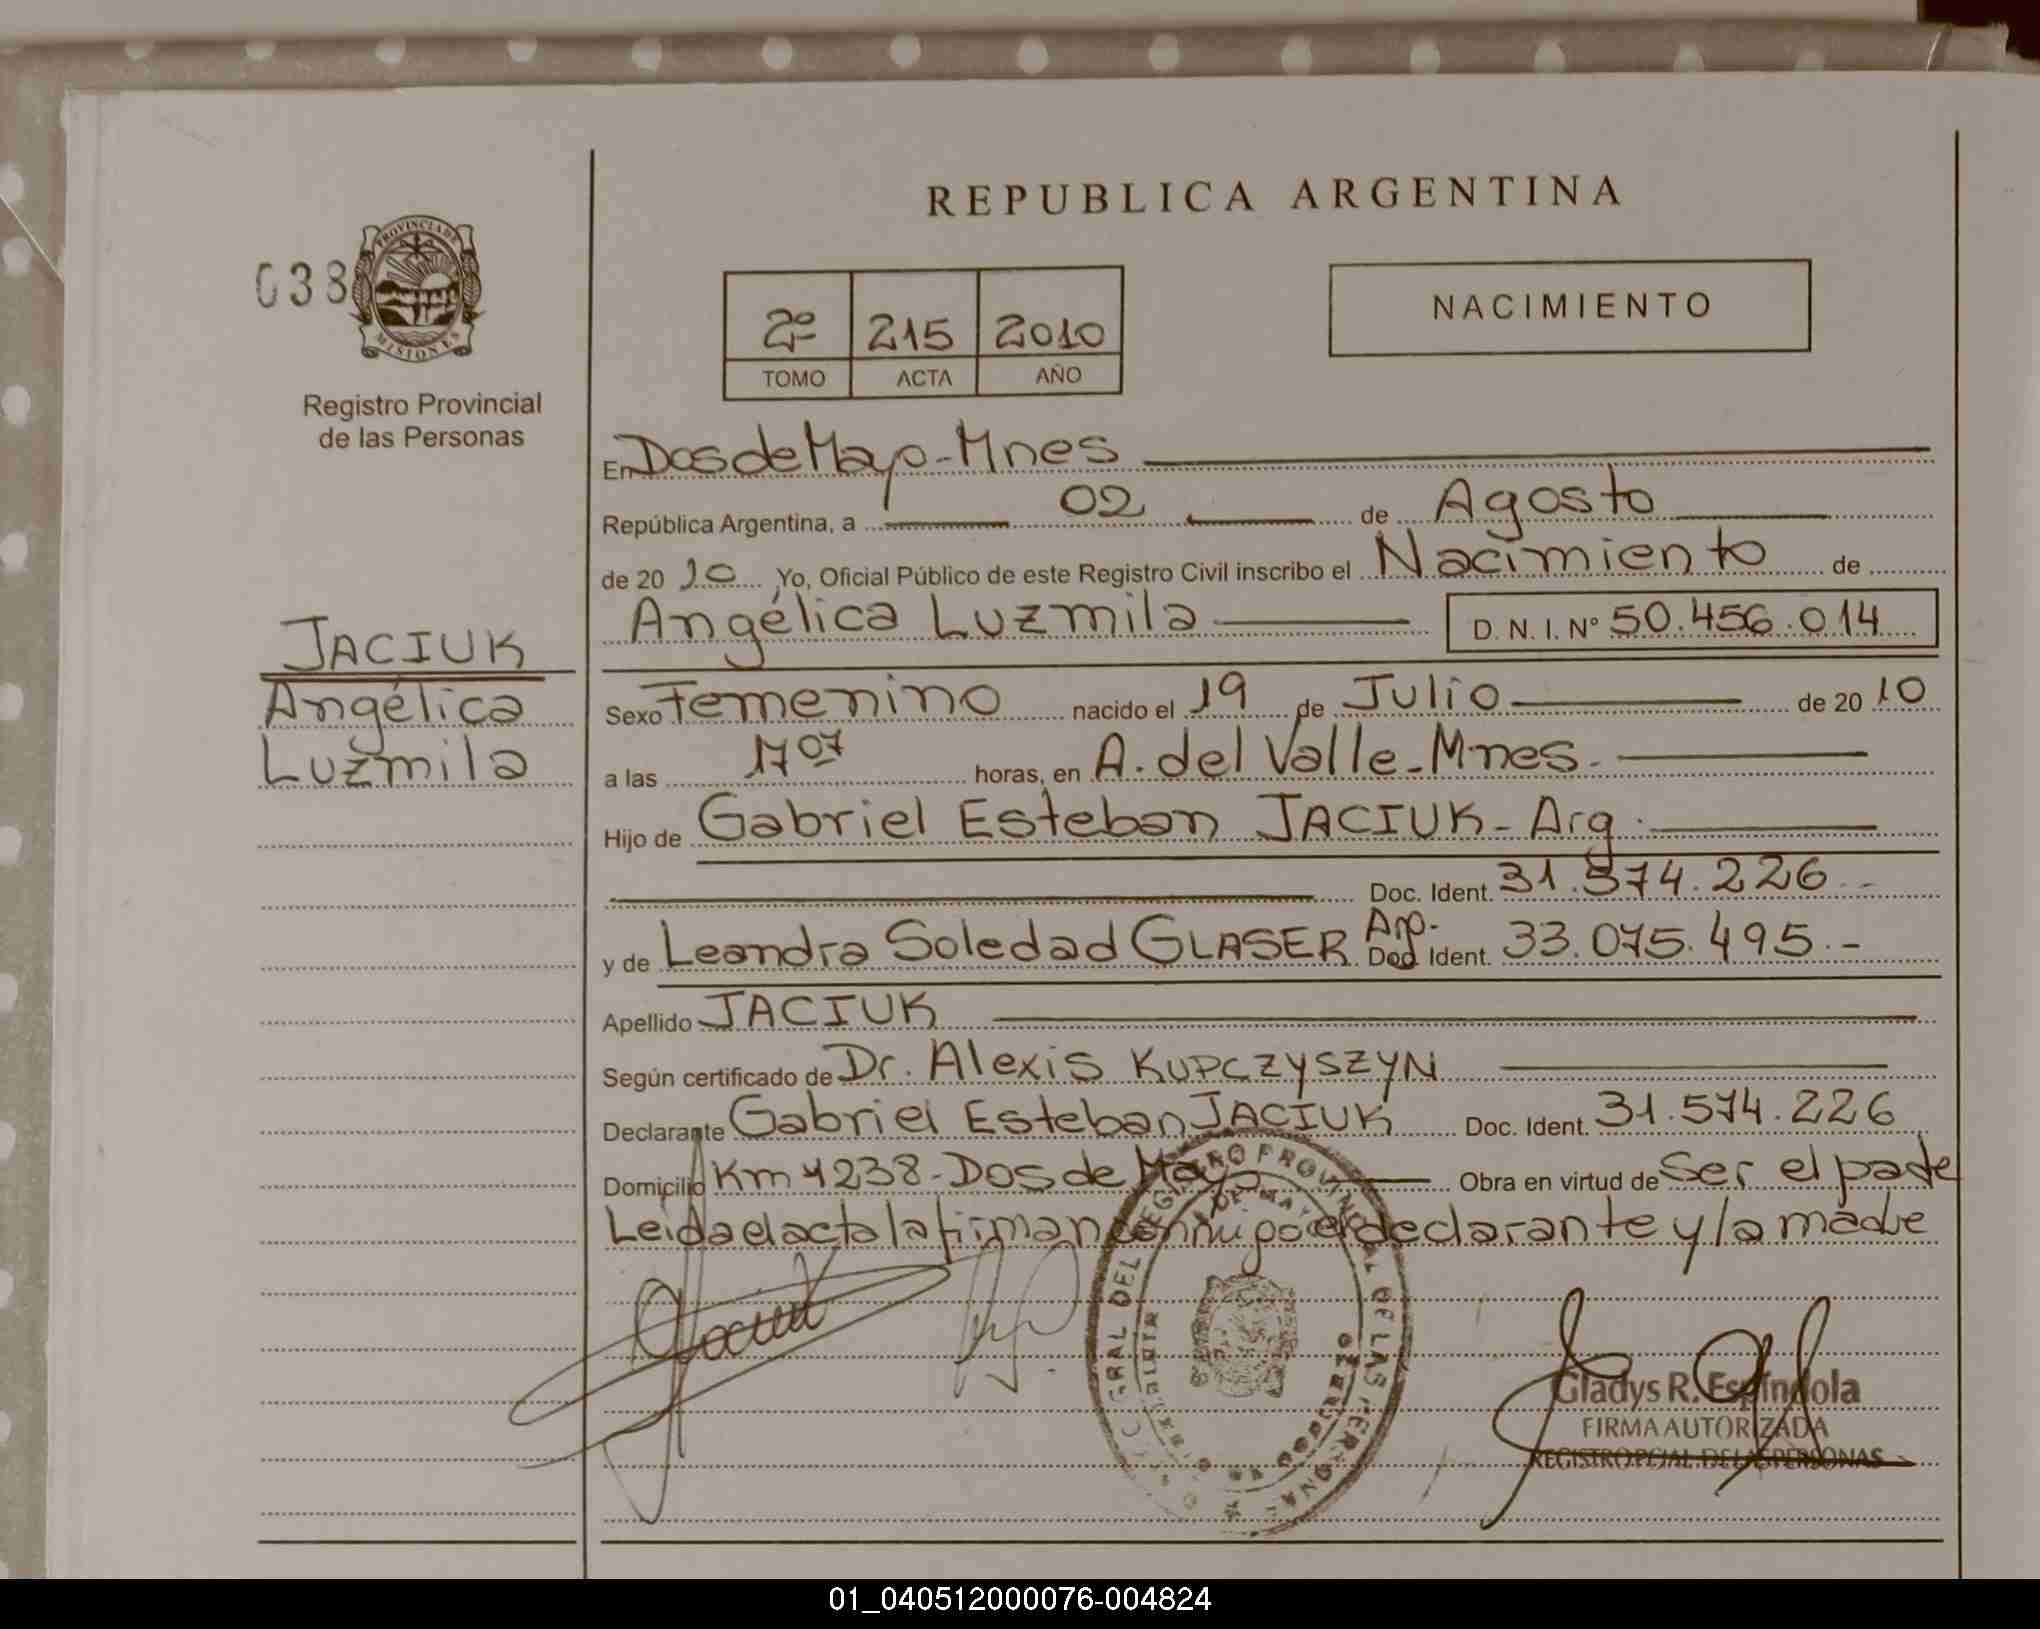 REPUBLICA ARGENTINA
038
PROVINCIA DE
MISIONES
Registro Provincial
de las Personas
2º 215 2010
TOMO ACTA AÑO
NACIMIENTO
JACIUK
Angélica
Luzmila
En Dos de Mayo - Mnes
República Argentina, a 02 de Agosto
de 2010 Yo, Oficial Público de este Registro Civil inscribo el Nacimiento de
Angélica Luzmila D. N. I. Nº 50.456.014
Sexo Femenino nacido el 19 de Julio de 2010
a las 17 07 horas, en A. del Valle - Mnes.
Hijo de Gabriel Esteban JACIUK - Arg.
Doc. Ident. 31.574.226
y de Leandra Soledad GLASER Arg. Doc. Ident. 33.075.495.-
Apellido JACIUK
Según certificado de Dr. Alexis KUPCZYSZYN
Declarante Gabriel Esteban JACIUK Doc. Ident. 31.574.226
Domicilio Km 1238 - Dos de Mayo Obra en virtud de Ser el padre
Leida el acta la firman conmigo el declarante y la madre
Gladys R. Espíndola
FIRMA AUTORIZADA
REGISTRO PCIAL. DE LAS PERSONAS
01_040512000076-004824